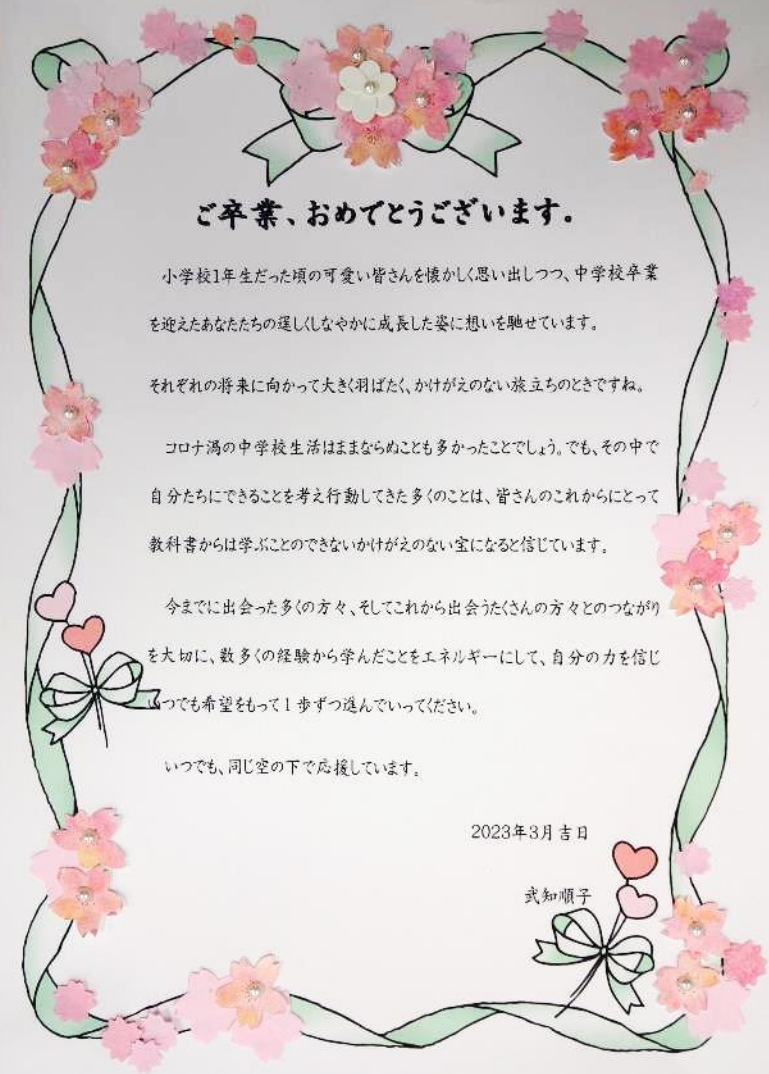 ご卒業、おめでとうございます。
小学校1年生だった頃の可愛い皆さんを懐かしく思い出しつつ、中学校卒業
を迎えたあなたたちの逞しくしなやかに成長した姿に想いを馳せています。
それぞれの将来に向かって大きく羽ばたく、かけがえのない旅立ちのときですね。
コロナ渦の中学校生活はままならぬことも多かったことでしょう。でも、その中で
自分たちにできることを考え行動してきた多くのことは、皆さんのこれからにとって
教科書からは学ぶことのできないかけがえのない宝になると信じています。
今までに出会った多くの方々、そしてこれから出会うたくさんの方々とのつながり
を大切に、数多くの経験から学んだことをエネルギーにして、自分の力を信じ
いつでも希望をもって1歩ずつ進んでいってください。
いつでも、同じ空の下で応援しています。
2023年3月吉日
武知順子